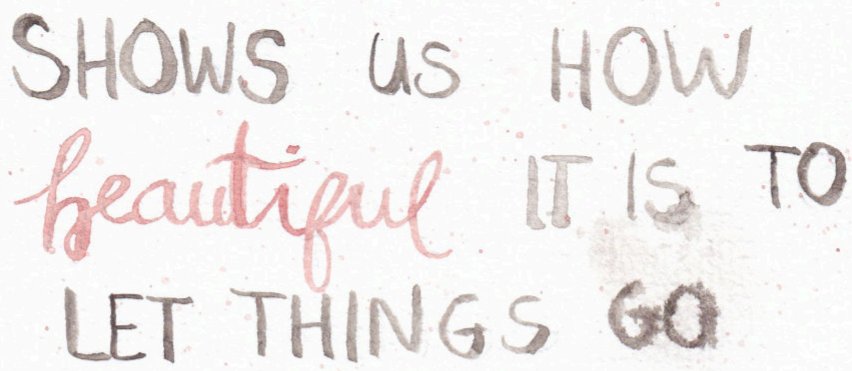 SHOWS us HOW
beautiful IT IS TO
LET THINGS GO